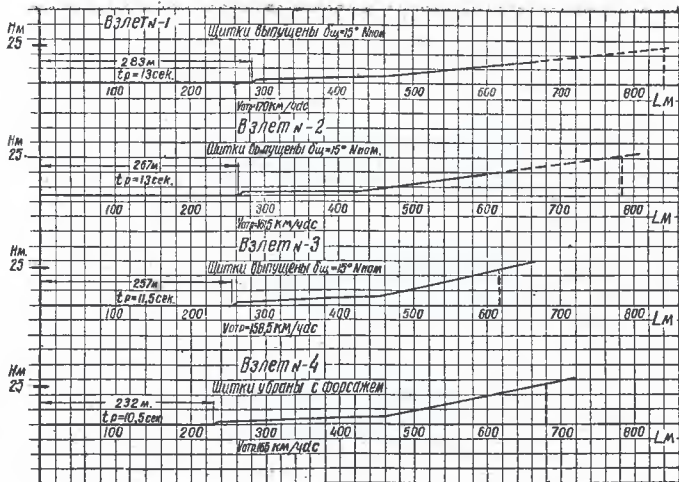 Взлет N-1
Нм
25
Щитки выпущены δщ=15° Nном
283м
tр=13сек.
100 200 300 400 500 600 700 800 Lм
Vотр=170км/час
Взлет N-2
Нм
25
Щитки выпущены δщ=15° Nном.
267м
tр=13сек.
100 200 300 400 500 600 700 800 Lм
Vотр=161,5 км/час
Взлет N-3
Нм.
25
Щитки выпущены δщ=15° Nном
257м
tр=11,5сек.
100 200 300 400 500 600 700 800 Lм
Vотр=158,5 км/час
Взлет N-4
Нм
25
Щитки убраны с форсажем
232 м.
tр=10,5сек
100 200 300 400 500 600 700 800 Lм
Vотр=165 км/час